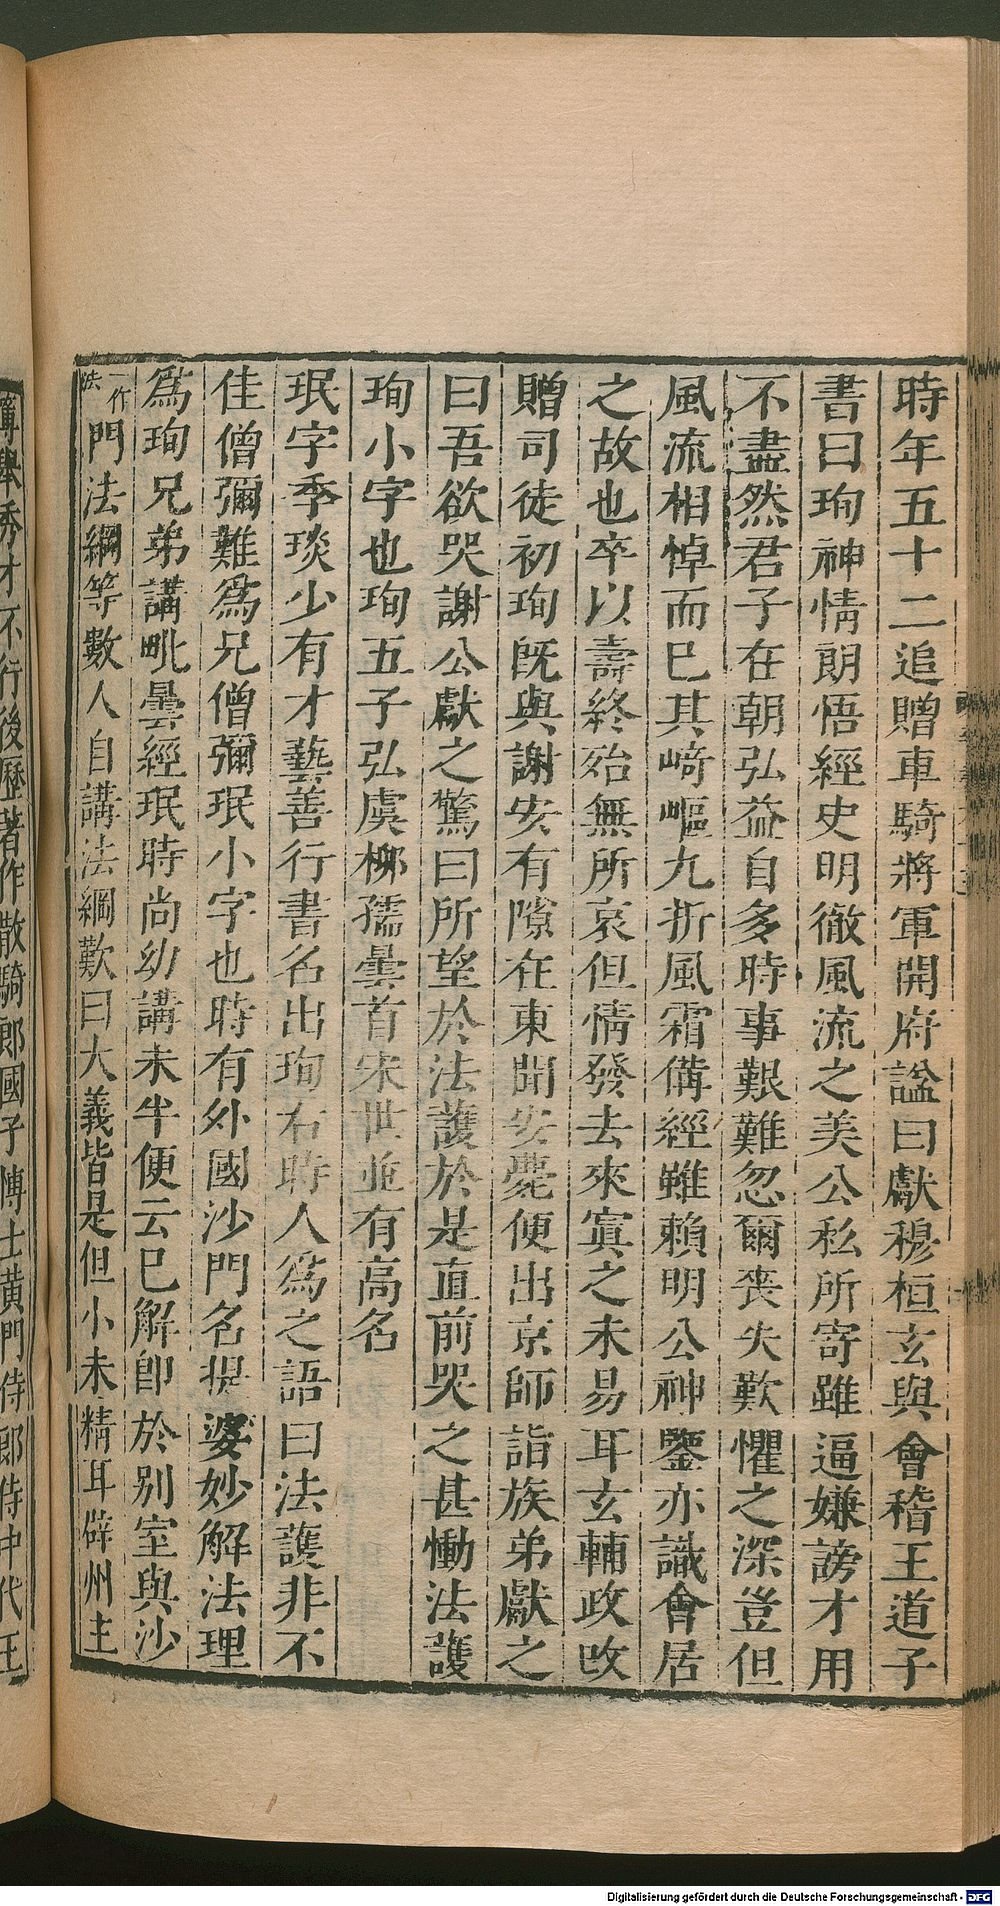 時年五十二追贈車騎將軍開府謚曰獻穆桓玄與會稽王道子
書曰珣神情朗悟經史明徹風流之美公私所寄雖逼嫌謗才用
不盡然君子在朝弘益自多時事艱難忽爾喪失歎懼之深豈但
風流相悼而巳其崎嶇九折風霜備經雖賴明公神鑒亦識會居
之故也卒以壽終殆無所哀但情發去來寘之未易耳玄輔政改
贈司徒初珣旣與謝安有隙在東聞安薨便出京師詣族弟獻之
曰吾欲哭謝公獻之驚曰所望於法護於是直前哭之甚慟法護
珣小字也珣五子弘虞柳孺曇首宋世並有高名
珉字季琰少有才藝善行書名出珣右時人爲之語曰法護非不
佳僧彌難爲兄僧彌珉小字也時有外國沙門名提婆妙解法理
爲珣兄弟講毗曇經珉時尚幼講未半便云巳解卽於别室與沙
一作法門法綱等數人自講法綱歎曰大義皆是但小未精耳辟州主
簿舉秀才不行後歷著作散騎郎國子博士黄門侍郎侍中代王
Digitalisierung gefördert durch die Deutsche Forschungsgemeinschaft - DFG